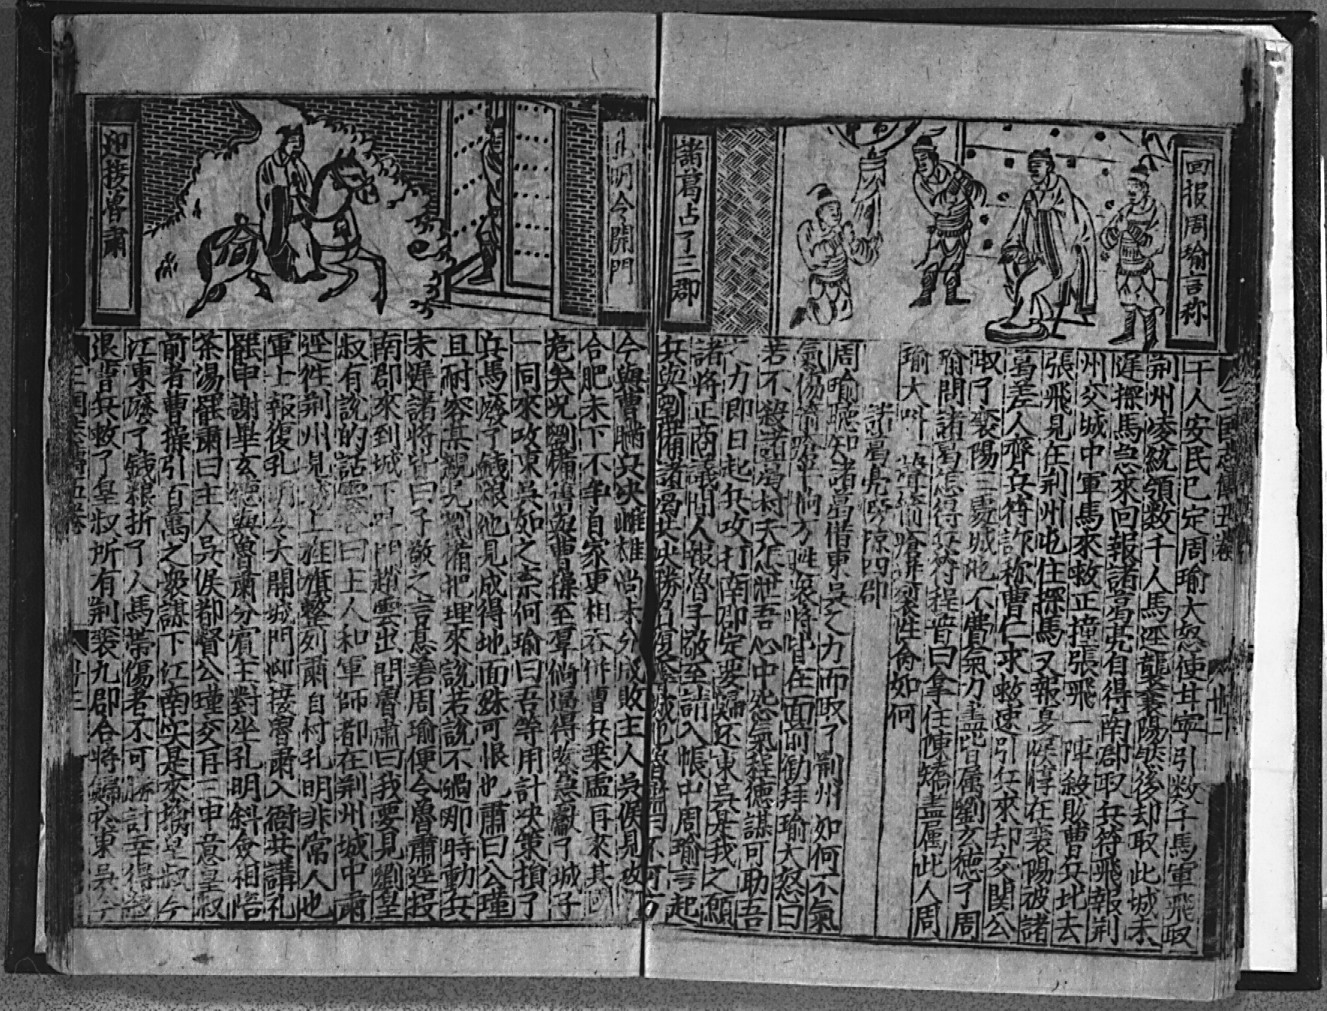 回报周瑜言称
諸葛占了三郡
千人安民已定周瑜大怒使甘寧引数千馬軍飛取
荆州凌統領数千人馬逕襲襄陽然後却取此城未
遲探馬急來回報諸葛亮自得南郡取兵符飛報荆
州交城中軍馬來救正撞張飛一陣殺敗曹兵此去
張飛見在荆州屯住探馬又報夏侯惇在襄陽被諸
葛差人齊兵符詐称曹仁求救速引仁來却交関公
取了襄陽二處城池不費氣力盡皆属劉玄德了周
瑜問諸葛怎得兵符程普曰拿住陳矯盡属此人周
瑜大叫一聲箭瘡迸裂性命如何
諸葛亮旁掠四郡
周瑜聽知諸葛借東吳之力而取了荆州如何不氣
氣傷箭瘡半晌方甦衆將皆住面前勸拜瑜大怒曰
若不殺諸葛村夫怎泄吾心中怨氣程德謀可助吾
之力即日起兵攻打南郡定要歸还東吳是我之願
諸將正商議間人報魯子敬至請入帳中周瑜言起
兵與劉備諸葛共决勝負復奪城池魯肅曰不可方
孔明令開門
迎接魯肅
今與曹腦兵决雌雄尚未分成敗主人吳侯見攻
合肥未下不争自家更相吞併曹兵乘虛再來其
危矣况劉備舊與曹操至厚倘逼得緊急獻了城子
一同來攻東吳如之奈何瑜曰吾等用計决策損了
兵馬廢了錢粮他見成得地面殊可恨也肅曰公瑾
且耐容某親見劉備把理來說若說不過那時動兵
未遲諸將皆曰子敬之言甚善周瑜便令魯肅逕投
南郡來到城下叫門趙雲出問魯肅曰我要見劉皇
叔有説的話雲答曰主人和軍師都在荆州城中肅
逕往荆州見城上旌旗整列肅自忖孔明非常人也
軍士報復孔明令大開城門迎接魯肅入衙共講孔
罷申謝畢玄德與魯肅分賓主對坐孔明斜僉相陪
茶湯罷肅曰主人吳侯都督公瑾交肖二申意皇叔
前者曹操引百萬之衆謀下江南实是來擒皇叔今
江東廢了錢粮折了人馬帶傷者不可勝計幸得殺
退曹兵救了皇叔所有荆襄九郡合將歸於東吳今